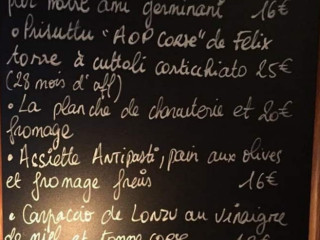 par notre ami germinani 16€
• Prisuttu "AOP CORSE" de Felix
torre à cuttoli corticchiato 25€
(28 mois d'aff)
• La planche de charcuterie et 20€
fromage
• Assiette Antipasti, pain aux olives
et fromage freis 16€
• Carpaccio de Lonzu au vinaigre
de miel et tomme corse